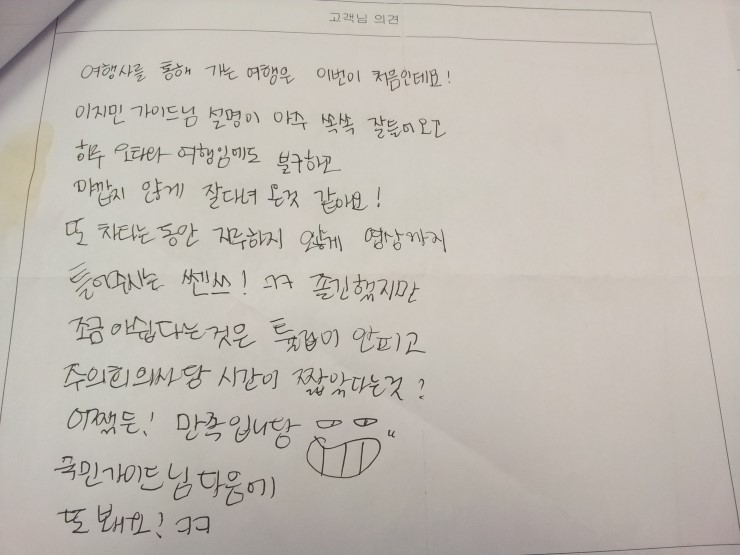 고객님 의견
여행사를 통해 가는 여행은 이번이 처음인데요!
이지민 가이드님 설명이 아주 쏙쏙 잘들어오고
하루 오타와 여행임에도 불구하고
아깝지 않게 잘다녀 온것 같아요!
또 차타는 동안 지루하지 않게 영상까지
틀어주시는 쎈쓰! ㅋㅋ 졸긴했지만
조금 아쉽다는것은 튤립이 안피고
주의회의사당 시간이 짧았다는것?
어쨌든! 만족입니당
가이드님 다음에
또 봬요! ㅋㅋ